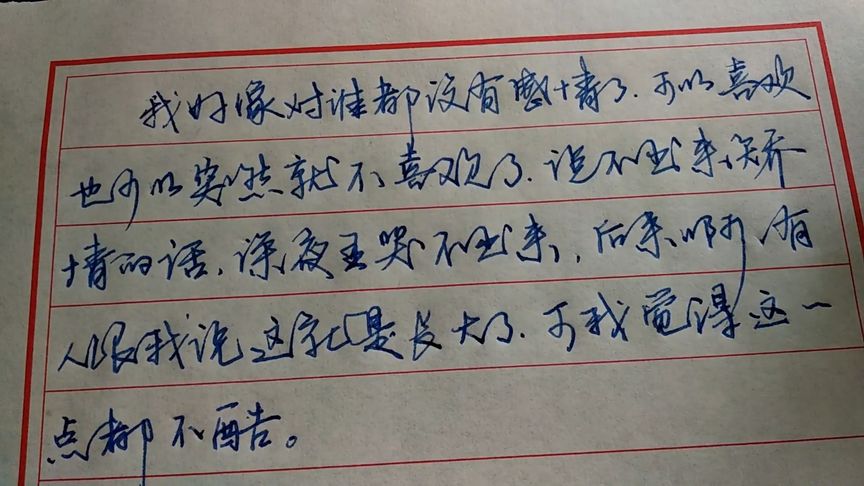 我好像对谁都没有感情了.可以喜欢
也可以突然就不喜欢了.说不出来矫
情的话,深夜里哭不出来,后来啊,有
人跟我说这就是长大了.可我觉得这一
点都不酷。